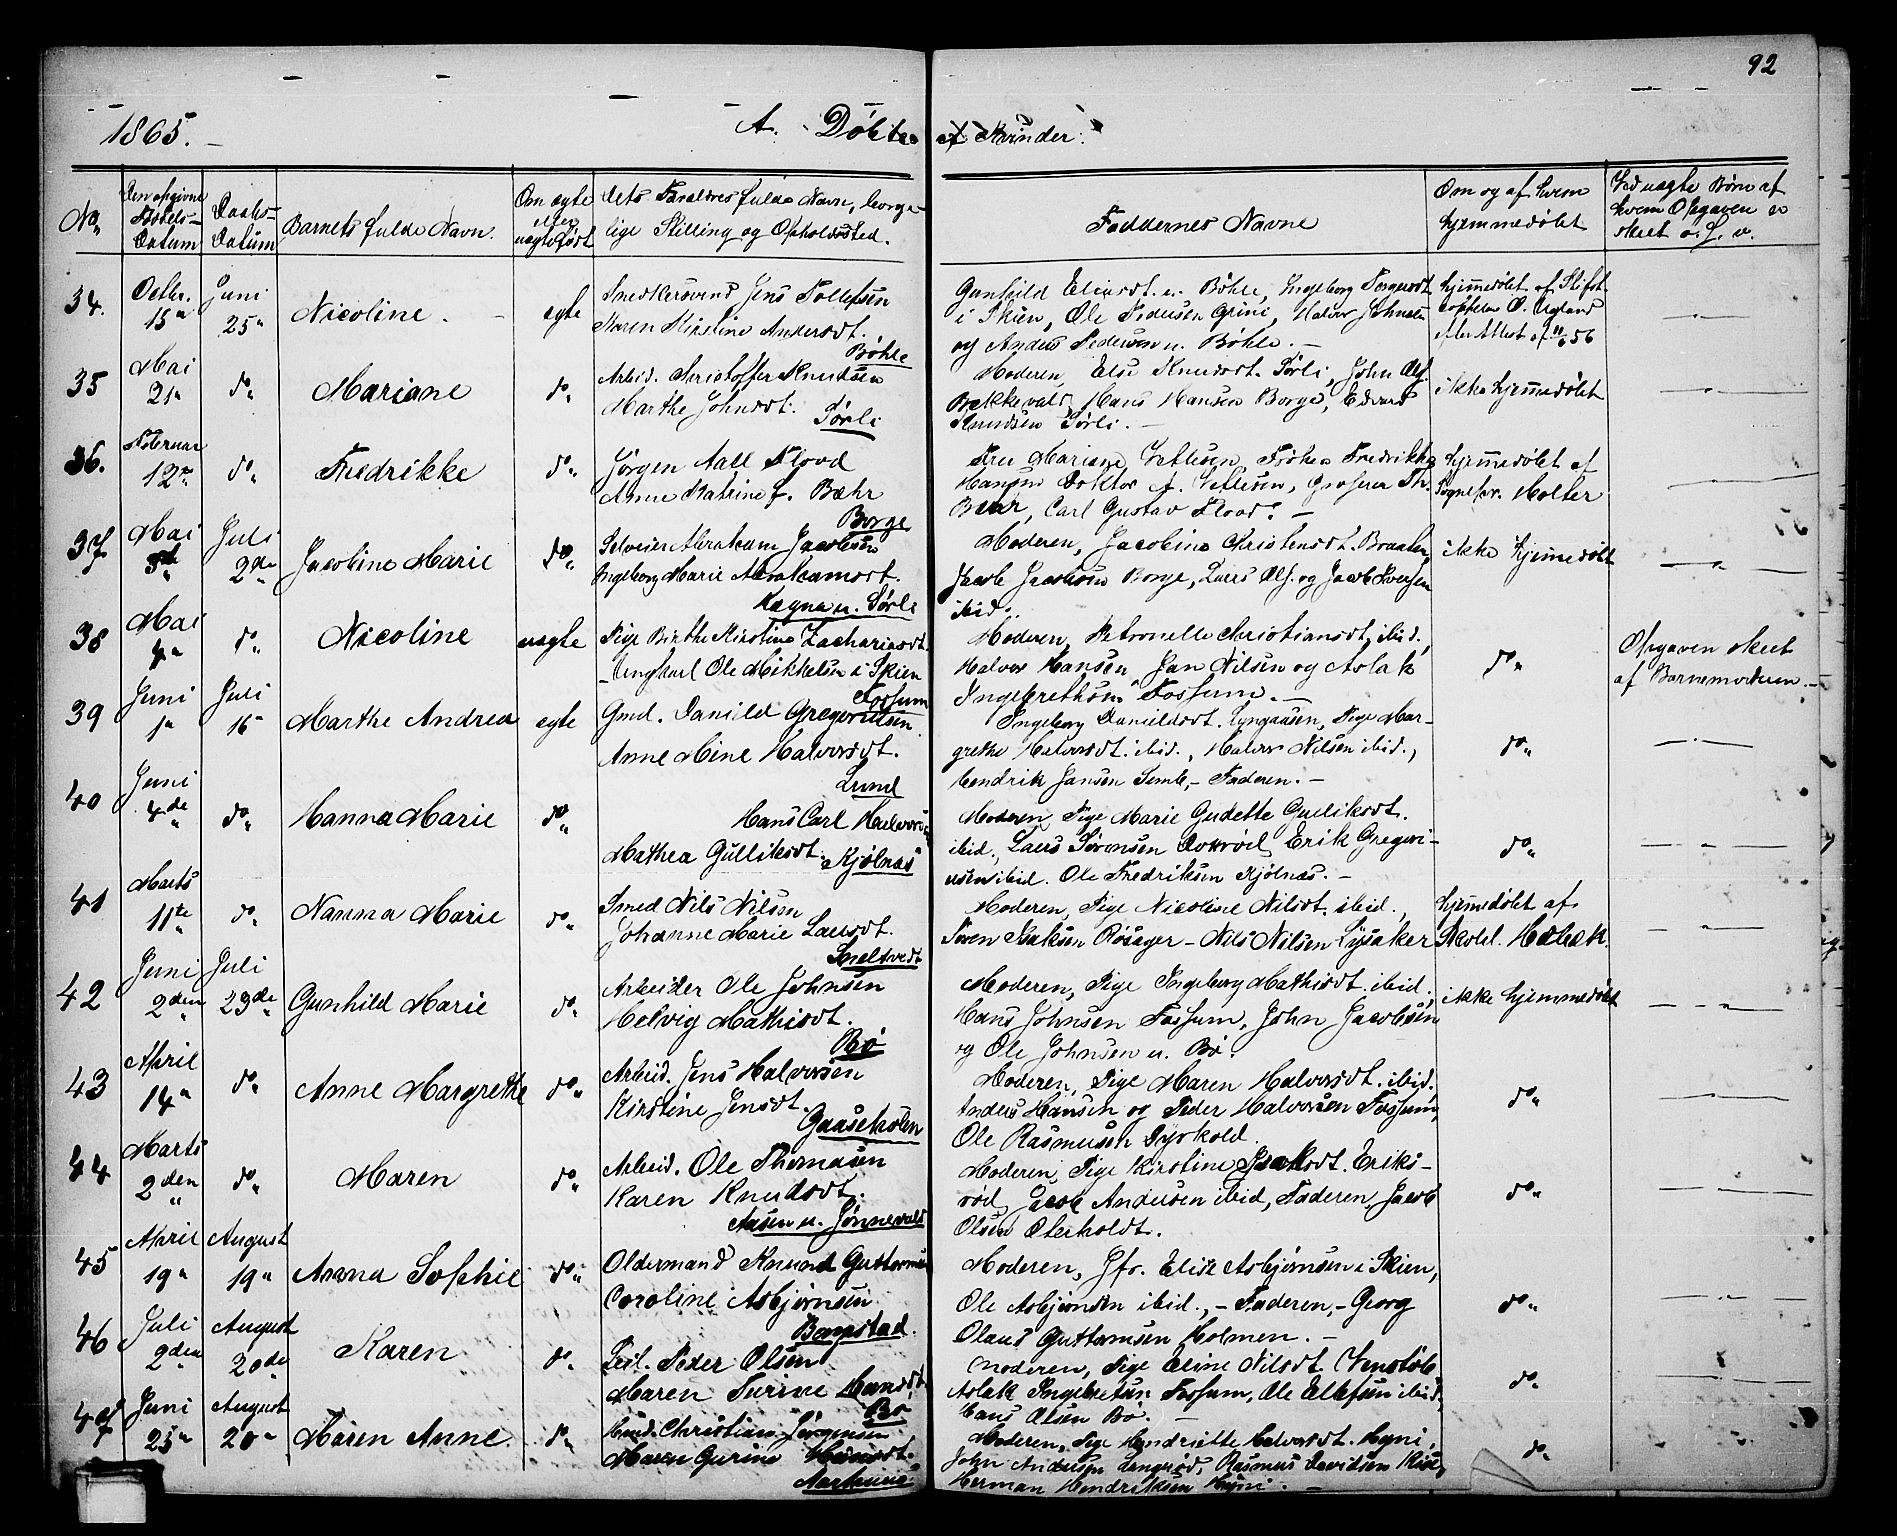 92
1865.
A. Døbte
Kvinder.
No
Den opgivne Fødsels-Datum
Daabs-Datum
Barnets fulde Navn.
Om ægte eller uægte født
Dets Forældres fulde Navn, borger-
lige Stilling og Opholdssted.
Faddernes Navne
Om og af hvem hjemmedøbt
Ved uægte Børn af hvem Opgaven er skeet o. s. v.
34. Octbr. 15n Juni 25n Nicoline. ægte
Snedkersvend Jens Tollefsen
Karen Kirstine Andersdt.
Bøhle
Gunhild i Bøhle, Ingeborg
i Skien, Ole Pedersen Grini, Halvor Johnsen
og Anders Pedersen u. Bøhle. -
hjemmedøbt af Stift
35 Mai 21n do Mariane do
Arbeid. Christoffer Knudsen
Marthe Johnsdt.
Sørli
Moderen, Else Knudsdt. Sørli, John Ols.
Bekkevald, Hans Hansen Borge, Edvard
Knudsen Sørli. -
ikke hjemmedøbt
36. Februar 12n do Fredrikke do
Jørgen Aall Flood
Anne Katrine f. Bæhr
Borge
Fru Mariane Vetlesen, Frøken Fredrikke
Hansen Doktor A. Vetlesen, Grosserer Th.
Carl Gustav Flood. -
hjemmedøbt af
Sognepr. Holter
37 Mai Juli 2den Jacobine Marie do
Selveier Abraham Jacobsen
Ingeborg Marie Abrahamsdt.
u. Sørli
Moderen, Jacobine Christensdt. Braaten,
Jacob Jacobsen Borge, Lars Ols. og Jacob Iversen
ibid.
ikke hjemmedøbt
38 Mai do Nicoline uægte
Pige Birthe Kirstine Zachariasdt.
Ungkarl Ole Mikkelsen i Skien
Fossum
Moderen, Petronelle Christiansdt. ibid,
Halvor Hansen, Jan Nilsen og Aslak
Ingebrethsen Fossum. -
do
Opgaven skeet
af Barnemoderen. -
39 Juni 1n Juli 16n Marthe Andrea ægte
Gmd. Daniel Gregoriusen
Anne Mine Halvorsdt.
Lund
Ingeborg Danielsdt. Lyngaasen, Pige Mar-
grethe Halvorsdt. ibid., Halvor Nilsen ibid.,
Hendrik Jansen Semb, - Faderen. -
do
40 Juni 4de do Hanna Marie do
Hans Carl Halvorsen
Mathea Gulliksdt. Kjølnæs
Moderen, Pige Marie Gudette Gulliksdt.
ibid., Lars Sørensen Erik Gregori-
usen ibid. Ole Fredriksen Kjølnæs. -
do
41 Marts 11te do Nanna Marie do
Smed Nils Nilsen
Johanne Marie Larsdt.
Snaltvedt
Moderen, Pige Nicoline Nilsdt. ibid.,
Søren Isaksen Røsager - Nils Nilsen Lysaker
hjemmedøbt af
Skohl. Hæbæk.
42 Juni 2den Juli 23de Gunhild Marie do
Arbeider Ole Johnsen
Helvig Mathisdt.
Bø
Moderen, Pige Ingeborg Mathisdt. ibid.,
Hans Johnsen Fossum, John Jacobsen
og Ole Johnsen u. Bø.
ikke hjemmedøbt
43 April 14n do Anne Margrethe do
Arbeid. Jens Halvorsen
Kirstine Jensdt.
Gaaseholen
Moderen, Pige Maren Halvorsdt. ibid.
Anders Hansen og Peder Halvorsen Fossum,
Ole Rasmusen Dyrkold.
do
44 Marts 2den do Maren do
Arbeid. Ole Thomasen
Karen Knudsdt.
Aasen u. Jønnevald
Moderen, Pige Kirstine Isaksdt. Eriks-
rød, Jacob Andersen ibid, Faderen, Jacob
Olsen Oterholdt.
do
45 April 19n August 19n Anna Sophie do
Oldermand Knund Guttormsen
Caroline Asbjørnsen
Borgestad.
Moderen, Jfr. Elise Asbjørnsen i Skien,
Ole Asbjørnsen ibid., - Faderen, - Georg
Olaus Guttormsen Holmen. -
do
46 Juli 2den August 20de Karen do
Leil. Peder Olsen
Maren Turine Hansdt.
Bø
Moderen, Pige Eline Nilsdt. Venstøb
Aslak Ingebretsen Fossum, Ole Ellefsen ibid.
Hans Olsen Bø. -
do
47 Juni 25n August 20n Maren Anne. do
Christian Jørgensen
Maren Gurine
Moderen, Pige Hendriette Halvorsdt. Hyni,
John Andersen Rasmus Davidsen
Herman Hendriksen Hyni. -
do